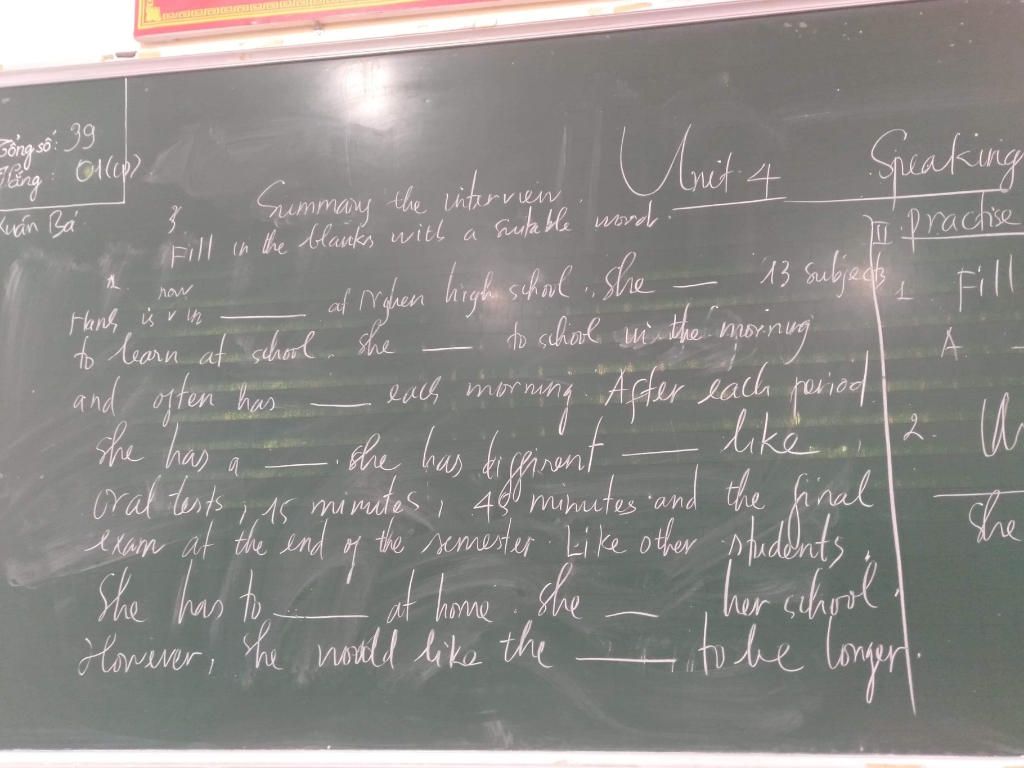 Tổng số: 39
Vắng: 01(cp)
Xuân Bá
Unit 4 Speaking
Summary the interview.
Fill in the blanks with a suitable word.
now
Hanh is v in ____ at Nghen high school. She __ 13 subjects
to learn at school. She __ to school in the morning
and often has ___ each morning. After each period
she has a ___ she has diffirent ___ like
oral tests, 15 minutes, 45 minutes and the final
exam at the end of the semester. Like other students,
She has to ____ at home. She __ her school.
However, she would like the ____ to be longer.
II practise
1 Fill
A.
2.
She